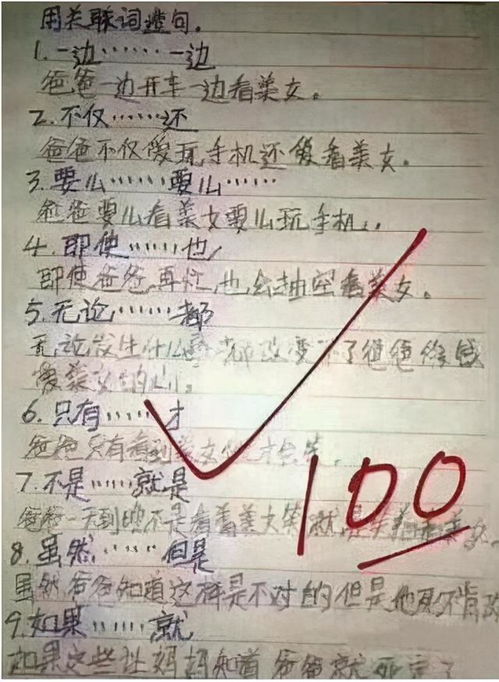 用关联词造句。
1.一边……一边
爸爸一边开车一边看美女。
2.不仅……还
爸爸不仅爱玩手机还爱看美女。
3.要么……要么……
爸爸要么看美女要么玩手机。
4.即使……也
即使爸爸再忙,也会抽空看美女。
5.无论……都
无论发生什么事都改变不了爸爸
爱美女的心。
6.只有……才
爸爸只有看到美女他才会笑。
7.不是……就是
爸爸一天到晚不是看着美女笑就是笑着看美女。
8.虽然……但是
虽然爸爸知道这样是不对的但是他
9.如果……就
如果这些让妈妈知道爸爸就死定了
100